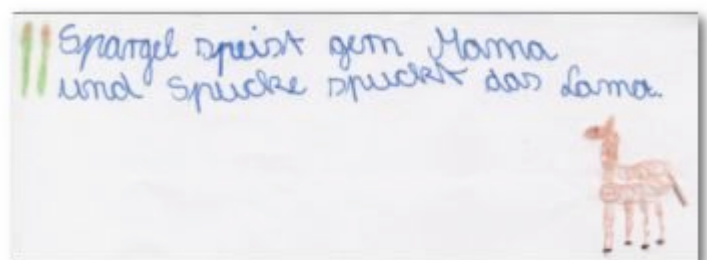 Spargel speist gern Mama
und Spucke spuckt das Lama.